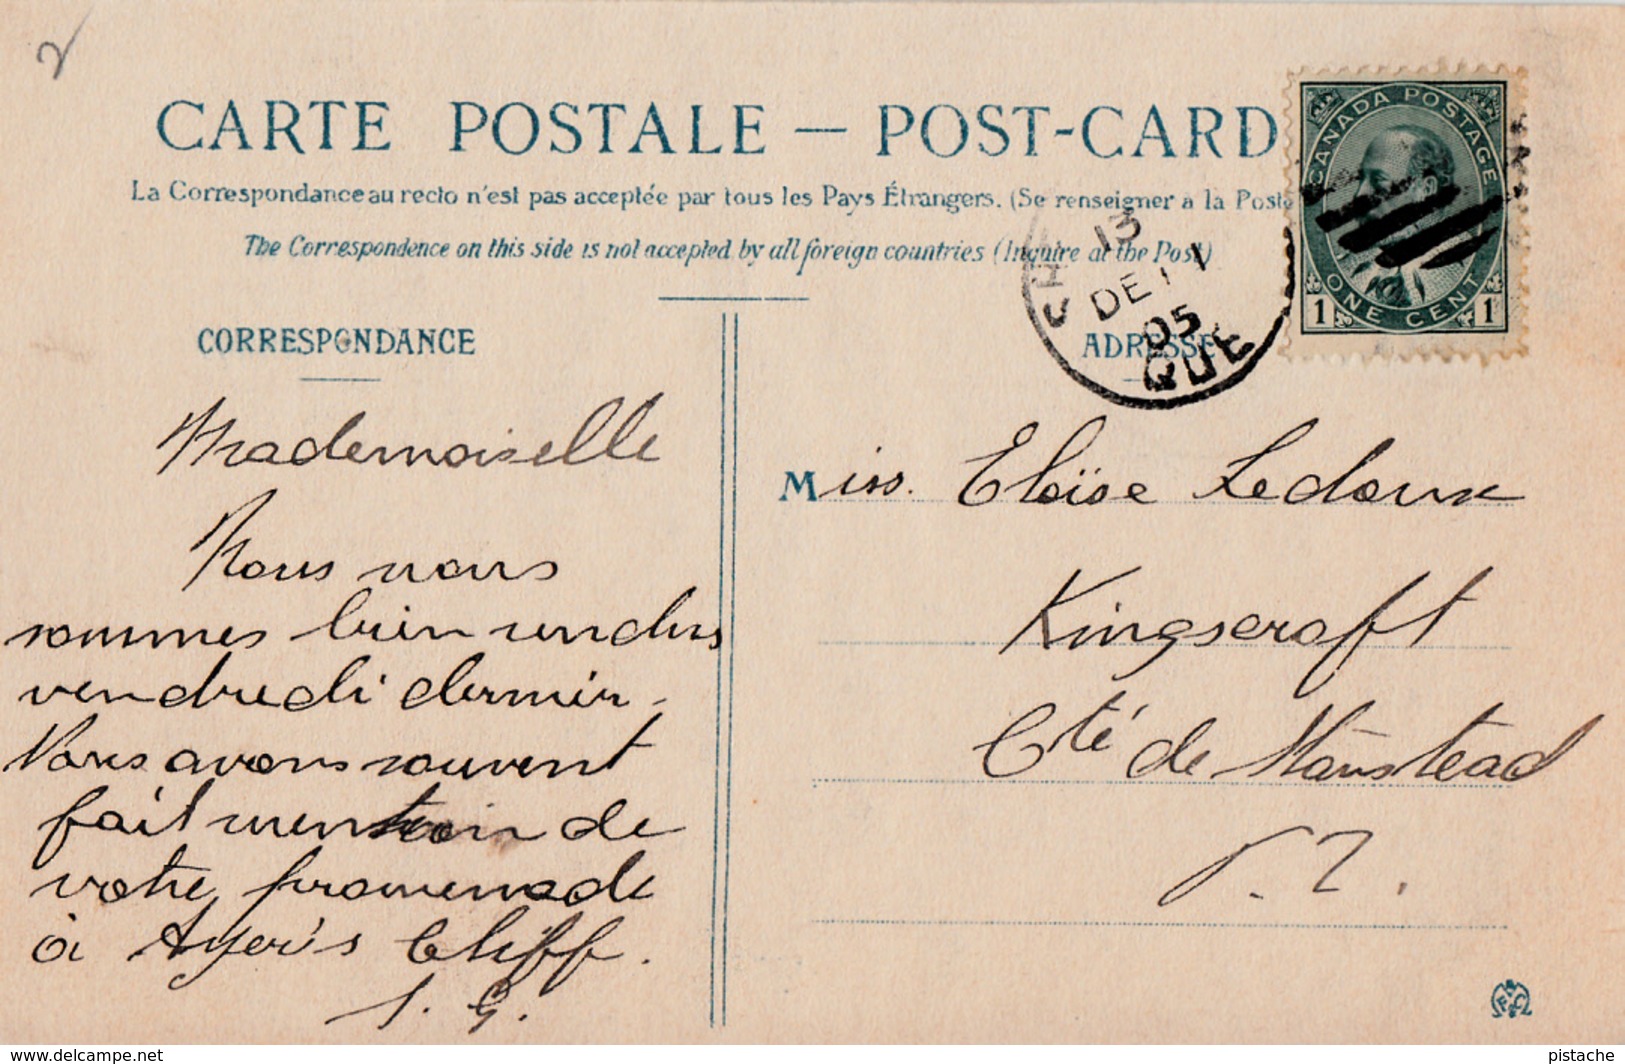 CARTE POSTALE — POST-CARD
La Correspondance au recto n'est pas acceptée par tous les Pays Étrangers. (Se renseigner a la Poste
The Correspondence on this side is not accepted by all foreign countries (Inquire at the Post)
CANADA POSTAGE
1 ONE CENT 1
13
DE 11
05
QUE
CORRESPONDANCE
ADRESSE
Mademoiselle
Nous nous
sommes bien rendus
vendredi dernier.
Nous avons souvent
fait mention de
votre promenade
à Ayer's Cliff.
J. G.
Miss. Eloïse Ledoux
Kingscroft
Cté de Stanstead
P. Q.
delcampe.net
pistache